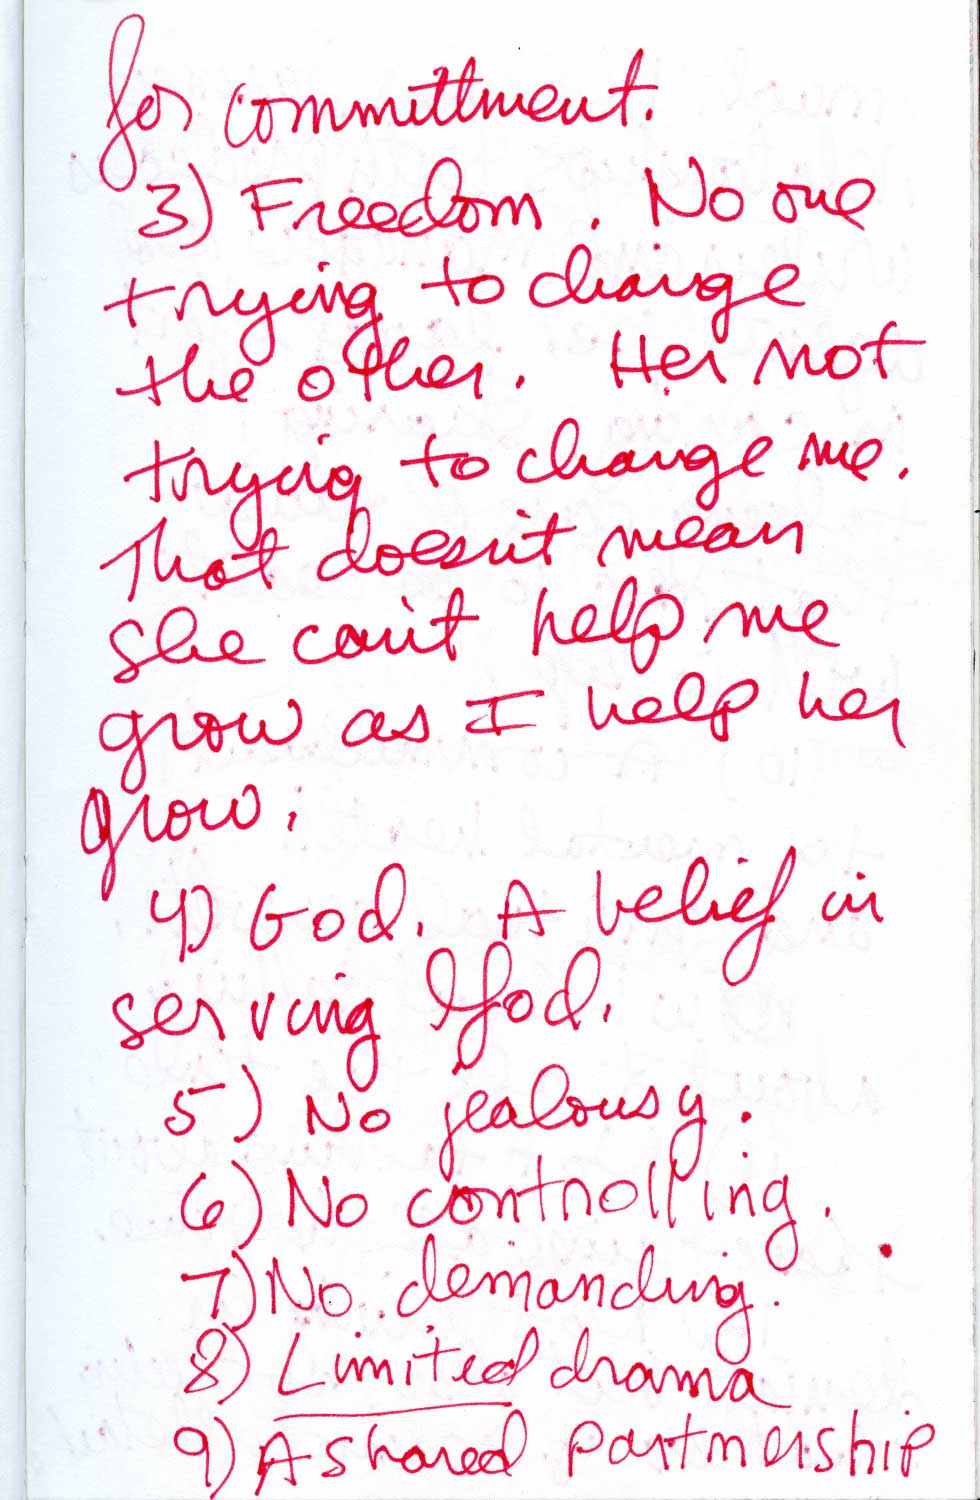 for committment.
3) Freedom. No one
trying to change
the other. Her not
trying to change me.
That doesn't mean
she can't help me
grow as I help her
grow.
4) God. A belief in
serving God.
5) No jealousy.
6) No controlling.
7) No demanding.
8) Limited drama
9) A shared partnership